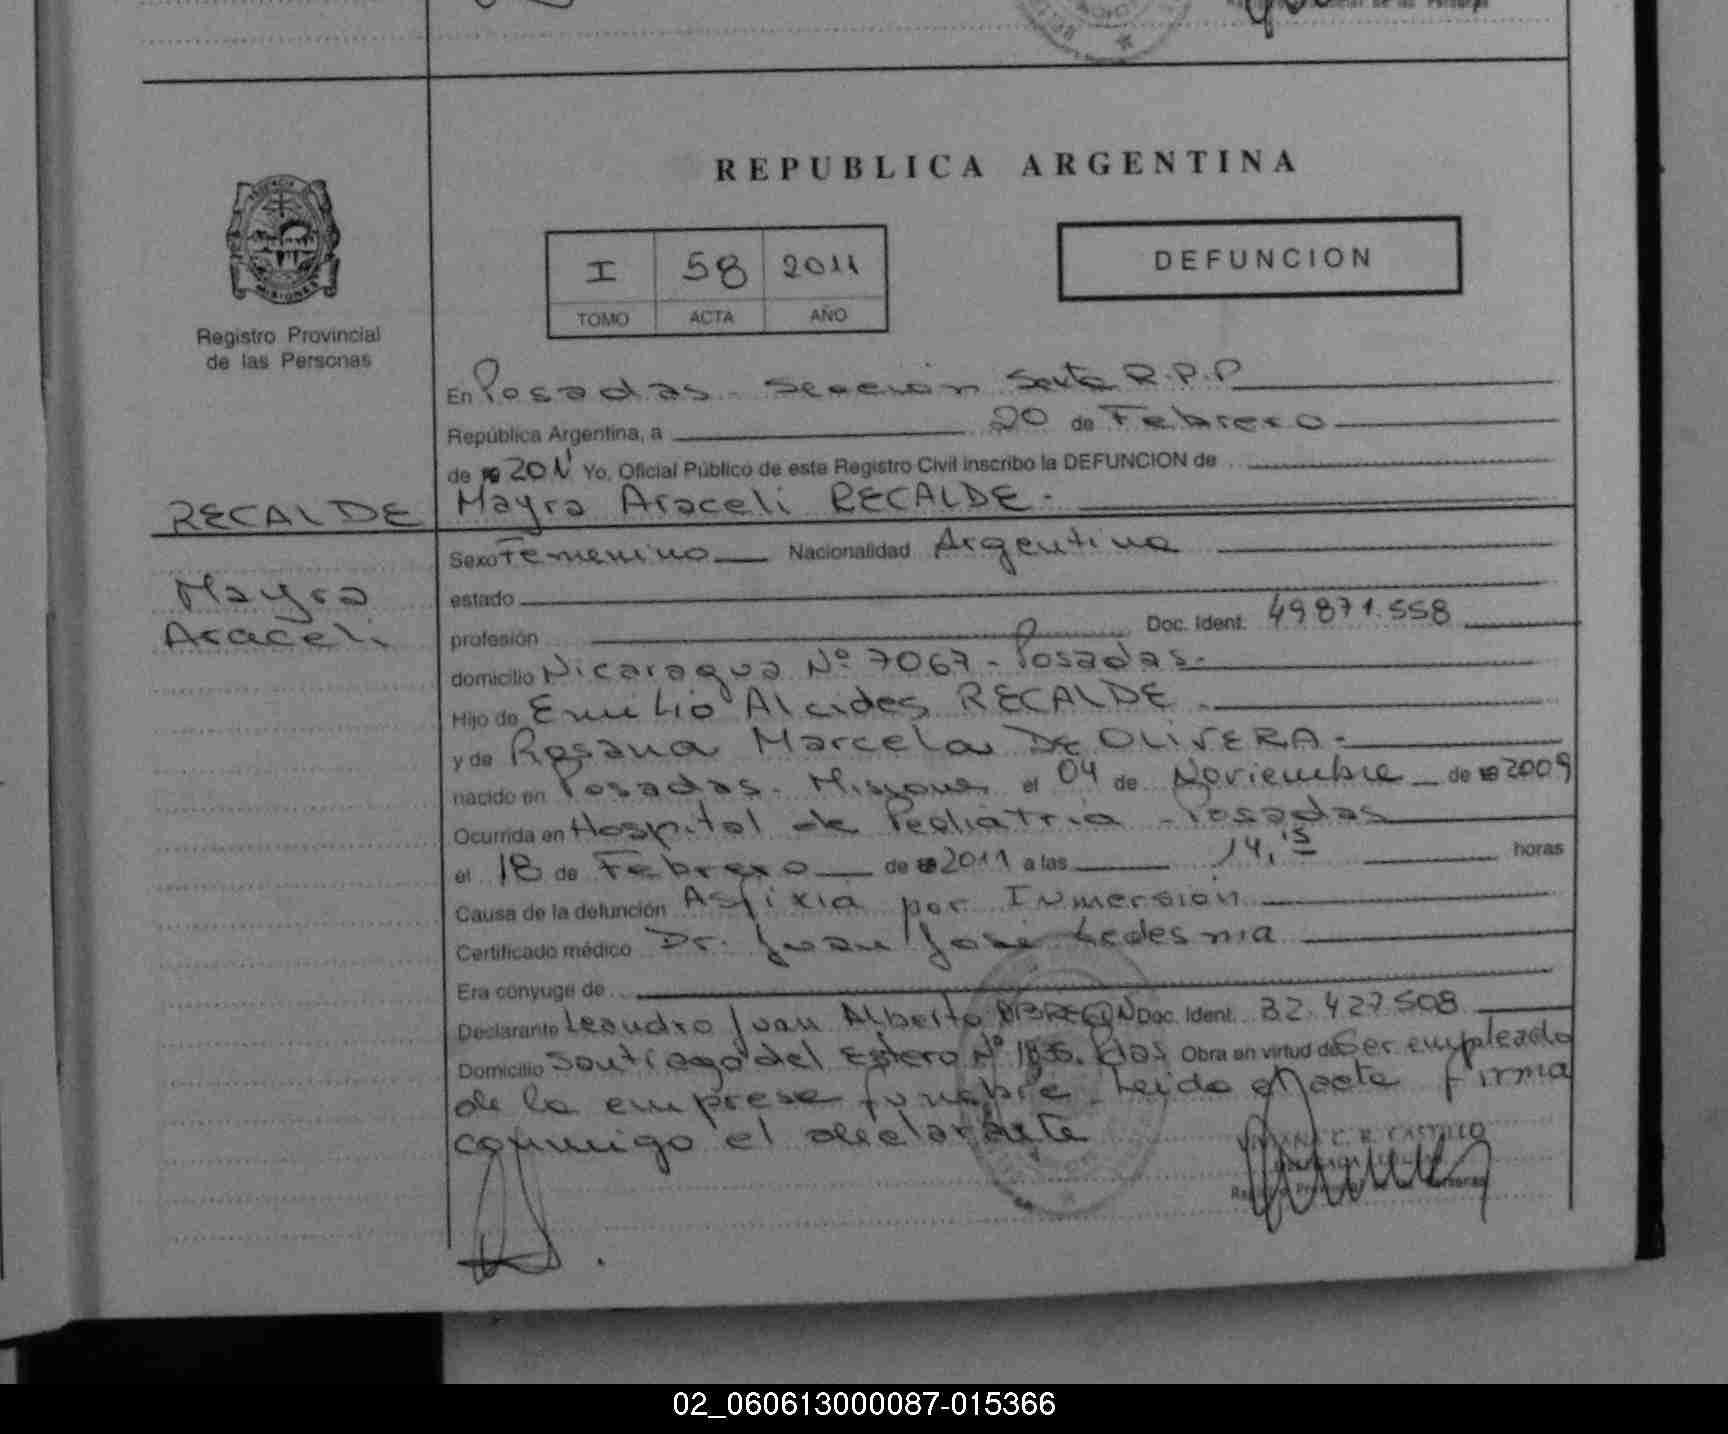 REPUBLICA ARGENTINA
I 58 2011
TOMO ACTA AÑO
DEFUNCION
MISIONES
Registro Provincial
de las Personas
En Posadas - Sección Sexta R.P.P
República Argentina, a 20 de Febrero
de 2011 Yo, Oficial Público de este Registro Civil inscribo la DEFUNCION de
RECALDE
Mayra Araceli RECALDE.
Mayra
Araceli
Sexo Femenino Nacionalidad Argentina
estado
profesión Doc. Ident. 49871.558
domicilio Nicaragua Nº 7067 - Posadas.
Hijo de Emilio Alcides RECALDE
y de Rosana Marcela DE OLIVERA.
nacido en Posadas. Misiones el 04 de Noviembre de 2009
Ocurrida en Hospital de Pediatria - Posadas
el 18 de Febrero de 2011 a las 14,15 horas
Causa de la defunción Asfixia por Inmersión
Certificado médico Dr. Juan José Ledesma
Era cónyuge de
Declarante Leandro Juan Alberto OBREGON Doc. Ident. 32.427.508
Domicilio Santiago del Estero Nº Pdas Obra en virtud de Ser empleado
de la empresa funebre. Leido el Acta firma
conmigo el declarante
C. R. CASTILLO
02_060613000087-015366